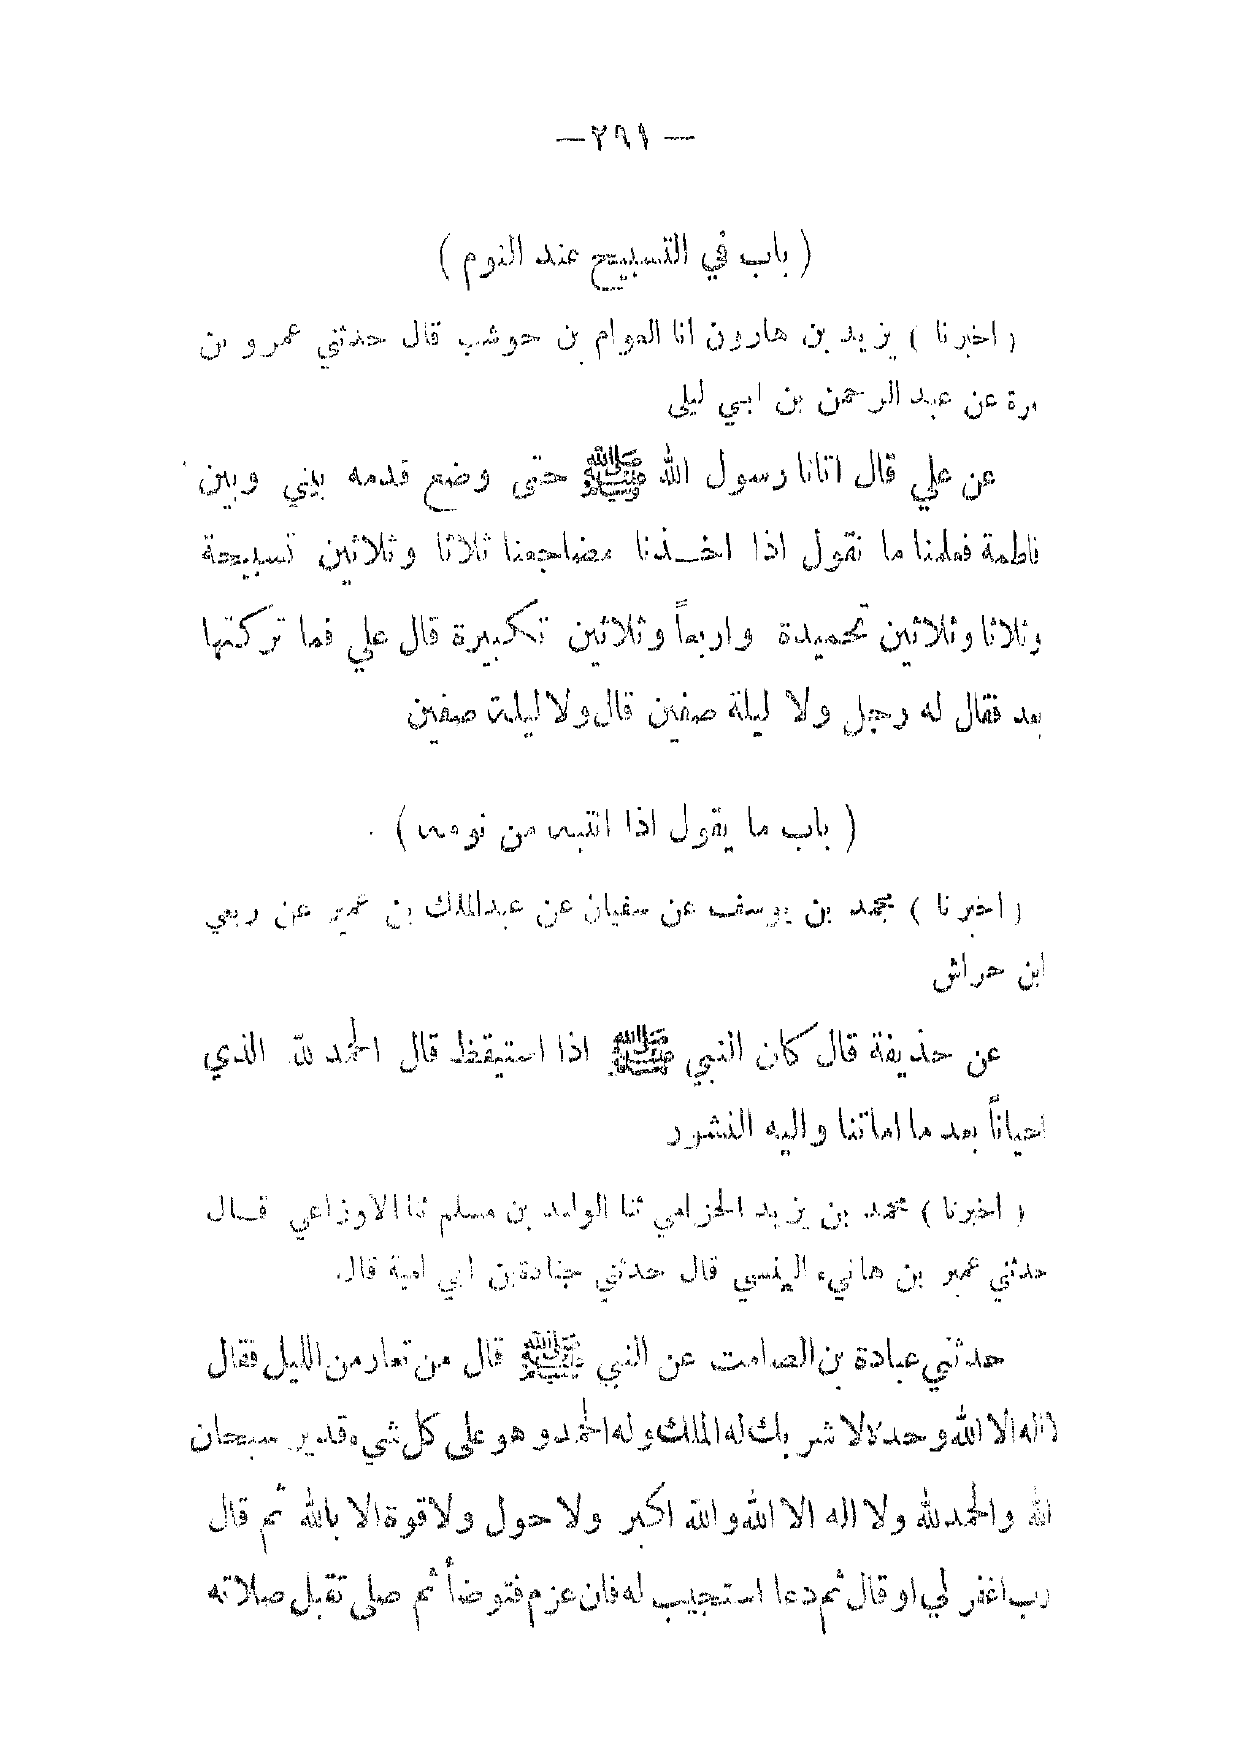 — ٢٩١ —
( باب في التسبيح عند النوم )
( اخبرنا ) يزيد بن هارون انا العوام بن حوشب قال حدثني عمرو بن
مرة عن عبد الرحمن بن ابي ليلى
عن علي قال اتانا رسول الله ﷺ حتى وضع قدمه بيني وبين
فاطمة فعلمنا ما نقول اذا اخذنا مضاجعنا ثلاثا وثلاثين تسبيحة
وثلاثا وثلاثين تحميدة واربعاً وثلاثين تكبيرة قال علي فما تركتها
بعد فقال له رجل ولا ليلة صفين قال ولا ليلة صفين
( باب ما يقول اذا انتبه من نومه )
( اخبرنا ) محمد بن يوسف عن سفيان عن عبدالملك بن عمير عن ربعي
ابن حراش
عن حذيفة قال كان النبي ﷺ اذا استيقظ قال الحمد لله الذي
احياناً بعد ما اماتنا واليه النشور
( اخبرنا ) محمد بن يزيد الحزامي ثنا الوليد بن مسلم ثنا الاوزاعي قال
حدثني عمير بن هانيء قال حدثني جنادة بن ابي امية قال
حدثني عبادة بن الصامت عن النبي ﷺ قال من تعار من الليل فقال
لا اله الا الله وحده لا شريك له الملك وله الحمد وهو على كل شيء قدير سبحان
الله والحمد لله ولا اله الا الله والله اكبر ولا حول ولا قوة الا بالله ثم قال
رب اغفر لي او قال ثم دعا استجيب له فان عزم فتوضأ ثم صلى تقبل صلاته